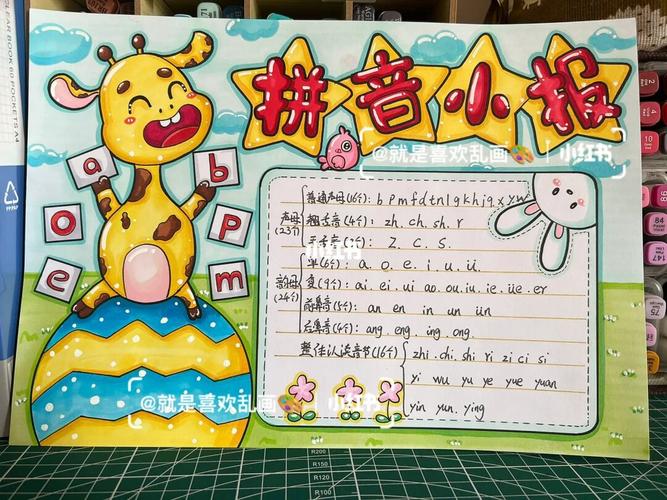 拼音小报
@就是喜欢乱画 小红书
a b
o p
e m
普通声母(16个): b p m f d t n l g k h j q x y w
声母(23个) 翘舌音(4个): zh. ch. sh. r
平舌音(3个): z. c. s.
小红书
单(6个): a. o. e. i. u. ü.
韵母(24个) 复(9个): ai. ei. ui ao. ou. iu. ie. üe. er
前鼻音(5个): an en in un ün
后鼻音(4个): ang. eng. ing. ong.
整体认读音节(16个) zhi. chi. shi ri zi ci si
yi wu yu ye yue yuan
yin yun. ying
@就是喜欢乱画 小红书
R200
R150
R100
84
147
75